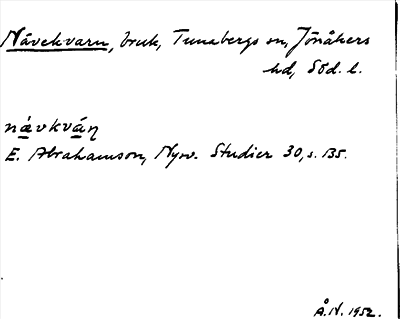 Nävekvarn, bruk, Tunabergs sn, Jönåkers
hd, Söd. l.
nä̀vkvàṇ
E. Abrahamson, Nysv. Studier 30, s. 135.
Å. N. 1952.